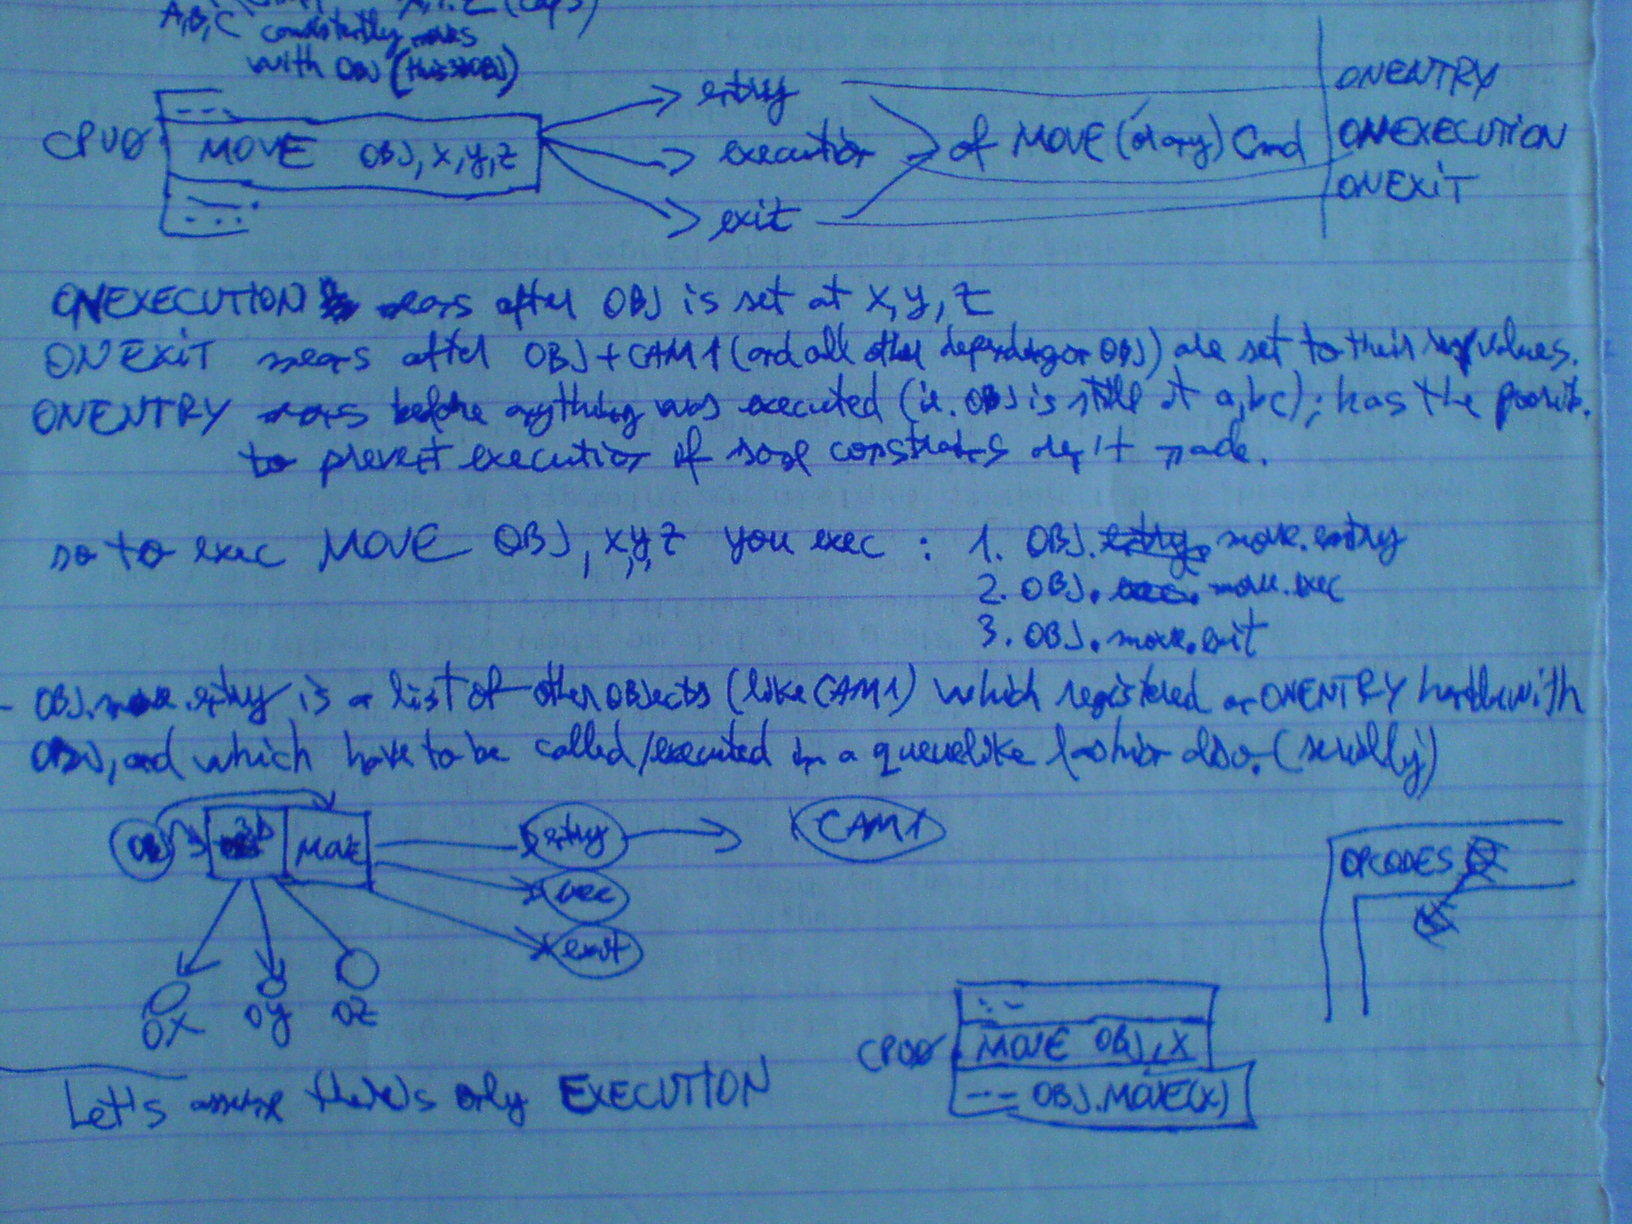 A,B,C consistently moves
with OBJ
CPUØ
MOVE OBJ,x,y,z
entry
execution
exit
of MOVE (or any) Cmd
ONENTRY
ONEXECUTION
ONEXIT
ONEXECUTION means after OBJ is set at x,y,z
ONEXIT means after OBJ+CAM1 (and all other depending on OBJ) are set to their new values.
ONENTRY means before anything was executed (ie. OBJ is still at a,b,c); has the possib.
to prevent execution if some constraints aren't made.
so to exec MOVE OBJ, x,y,z you exec : 1. OBJ. move.entry
2. OBJ. move.exec
3. OBJ.move.exit
- OBJ.move.entry is a list of other objects (like CAM1) which registered an ONENTRY handler with
OBJ, and which have to be called/executed in a queuelike fashion also. (serially)
OBJ
3D
MOVE
entry
CAM1
exec
exit
OX OY OZ
OPCODES
CPUØ
MOVE OBJ,X
--- OBJ.MOVE(X)
Let's assume there's only EXECUTION